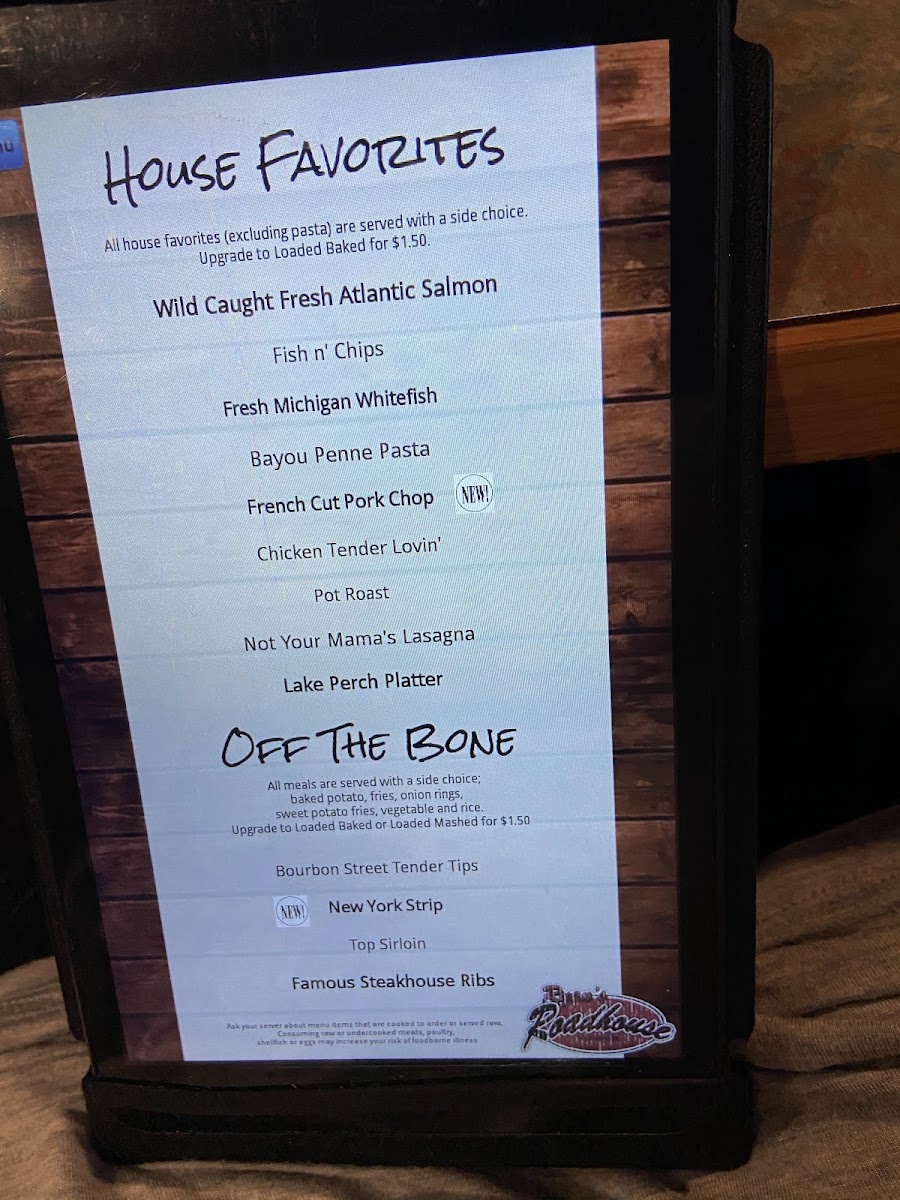 House Favorites
All house favorites (excluding pasta) are served with a side choice.
Upgrade to Loaded Baked for $1.50.
Wild Caught Fresh Atlantic Salmon
Fish n' Chips
Fresh Michigan Whitefish
Bayou Penne Pasta
French Cut Pork Chop NEW!
Chicken Tender Lovin'
Pot Roast
Not Your Mama's Lasagna
Lake Perch Platter
Off The Bone
All meals are served with a side choice;
baked potato, fries, onion rings,
sweet potato fries, vegetable and rice.
Upgrade to Loaded Baked or Loaded Mashed for $1.50
Bourbon Street Tender Tips
NEW! New York Strip
Top Sirloin
Famous Steakhouse Ribs
Ask your server about menu items that are cooked to order or served raw.
Consuming raw or undercooked meats, poultry,
shellfish or eggs may increase your risk of foodborne illness
Roadhouse